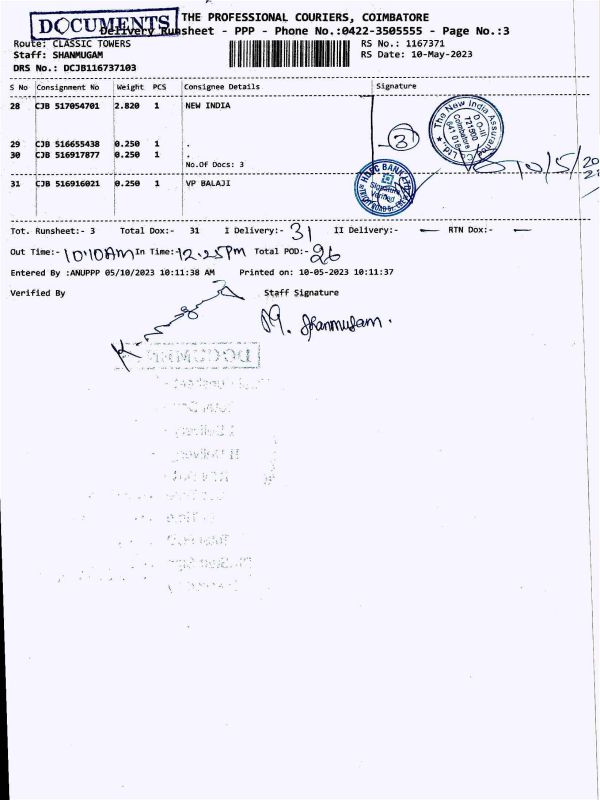 DOCUMENTS THE PROFESSIONAL COURIERS, COIMBATORE
Delivery Runsheet - PPP - Phone No.:0422-3505555 - Page No.:3
Route: CLASSIC TOWERS RS No.: 1167371
Staff: SHANMUGAM RS Date: 10-May-2023
DRS No.: DCJB116737103
S No Consignment No Weight PCS Consignee Details Signature
28 CJB 517054701 2.820 1 NEW INDIA
The New India Assurance
D O-III
721500
Coimbatore
641 018
3
10/5/20
29 CJB 516655438 0.250 1 .
30 CJB 516917877 0.250 1 .
No.Of Docs: 3
HDFC BANK
Signature
Verified
31 CJB 516916021 0.250 1 VP BALAJI
Tot. Runsheet:- 3 Total Dox:- 31 I Delivery:- 31 II Delivery:- — RTN Dox:- —
Out Time:- 10:10AM In Time:- 12.25PM Total POD:- 26
Entered By :ANUPPP 05/10/2023 10:11:38 AM Printed on: 10-05-2023 10:11:37
Verified By Staff Signature
M. Shanmugam.